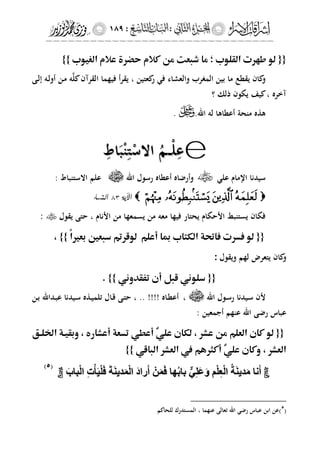 الجزء الثاني : الباب التاسع : ١٨٩
{{ لو طهرت القلوب ؛ ما شبعت من كلام حضرة علام الغيوب }}
وكان يقطع ما بين المغرب والعشاء في ركعتين ، يقرأ فيهما القرآن كله من أوله إلى
آخره ، كيف يكون ذلك ؟
هذه منحة أعطاها له الله .
عِلْمُ الاسْتِنْبَاطِ
سيدنا الإمام علي وأرضاه أعطاه رسول الله علم الاستنباط :
﴿ لَعَلِمَهُ الَّذِينَ يَسْتَنْبِطُونَهُ مِنْهُمْ ﴾ الآية ٨٣ النساء
فكان يستنبط الأحكام يحتار فيها معه من يسمعها من الأنام ، حتى يقول :
{{ لو فسرت فاتحة الكتاب بما أعلم لوقرتم سبعين بعيراً }} ،
وكان يتعرض لهم ويقول :
{{ سلوني قبل أن تفقدوني }} .
لأن سيدنا رسول الله ، أعطاه !!!! .. ، حتى قال تلميذه سيدنا عبدالله بن
عباس رضى الله عنهم أجمعين :
{{ لو كان العلم من عشر ، لكان عليٌ أعطي تسعة أعشاره ، وبقية الخلق
العشر ، وكان عليٌ أكثرهم في العشر الباقي }}
أَنَا مَدينَةُ الْعِلْمِ وَ عَلِيٌّ بابُها فَمَنْ أَرادَ الْمَدينَةَ فَلْيَأْتِ الْبابَ (٥)
(٥)عن ابن عباس رضي الله عنهما ، المستدرك للحاكم